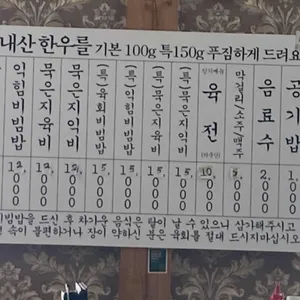 내산 한우를 기본 100g 특150g 푸짐하게 드려요
익힘비빔밥 12,000
묵은지육비 12,000
묵은지익비 12,000
(특)육회비빔밥 15,000
(특)익힘비빔밥 15,000
(특)묵은지육비 15,000
(특)묵은지익비 15,000
육전 10,000
막걸리(소주)맥주 5,000
음료수 2,000
공기밥 1,000
빔밥을 드신 후 차가운 음식은 탈이 날 수 있으니 삼가해주시고
속이 불편하거나 장이 약하신 분은 육회를 절대 드시지마십시오